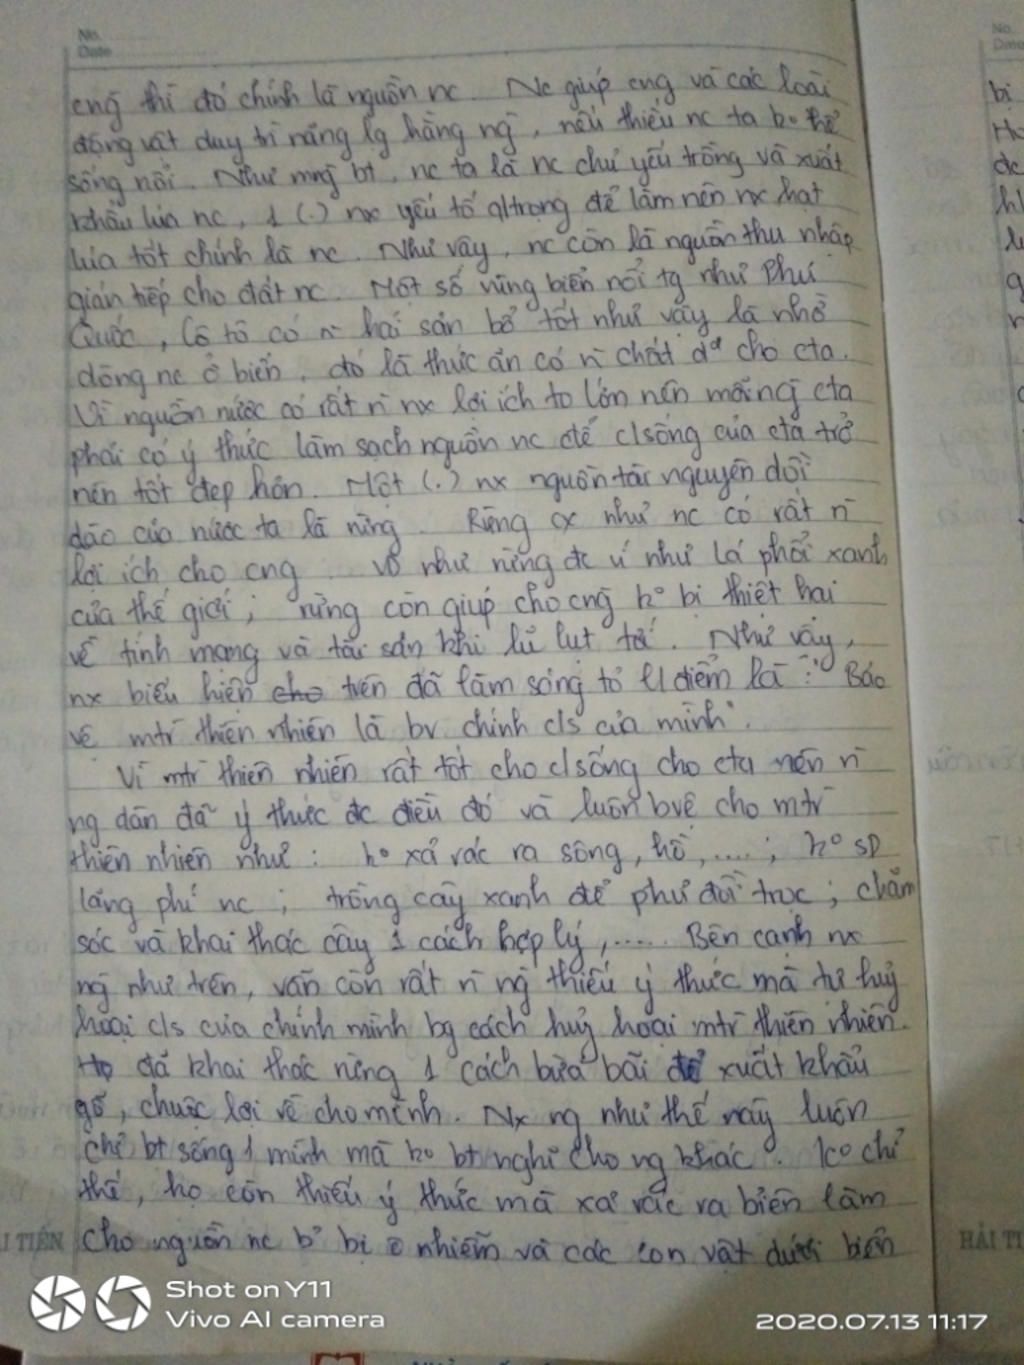 No.
Date
cng thì đó chính là nguồn nc. Nc giúp cng và các loài
động vật duy trì năng lg hằng ng, nếu thiếu nc ta ko thể
sống nổi. Như mng bt, nc ta là nc chủ yếu trồng và xuất
khẩu lúa nc, 1 (.) nx yếu tố qtrọng để làm nên nx hạt
lúa tốt chính là nc. Như vậy, nc còn là nguồn thu nhập
gián tiếp cho đất nc. Một số vùng biển nổi tg như Phú
Quốc, Cô tô có n hải sản bổ tốt như vậy là nhờ
dòng nc ở biển, đó là thức ăn có n chất d² cho cta.
Vì nguồn nước có rất n nx lợi ích to lớn nên mỗi ng cta
phải có ý thức làm sạch nguồn nc để c/sống của cta trở
nên tốt đẹp hơn. Một (.) nx nguồn tài nguyên dồi
dào của nước ta là rừng. Rừng cx như nc có rất n
lợi ích cho cng như rừng đc ví như lá phổi xanh
của thế giới; rừng còn giúp cho cng ko bị thiệt hại
về tính mạng và tài sản khi lũ lụt tới. Như vậy,
nx biểu hiện cho trên đã làm sáng tỏ l/điểm là: "Bảo
vệ mtr thiên nhiên là bv chính c/s của mình".
Vì mtr thiên nhiên rất tốt cho c/sống cho cta nên n
ng dân đã ý thức đc điều đó và luôn bvệ cho mtr
thiên nhiên như: ko xả rác ra sông, hồ,....; ko SD
lãng phí nc; trồng cây xanh để phủ đồi trọc; chăm
sóc và khai thác cây 1 cách hợp lý,..... Bên cạnh nx
ng như trên, vẫn còn rất n ng thiếu ý thức mà tự huỷ
hoại c/s của chính mình bg cách huỷ hoại mtr thiên nhiên.
Họ đã khai thác rừng 1 cách bừa bãi để xuất khẩu
gỗ, chuộc lợi về cho mình. Nx ng như thế này luôn
chỉ bt sống 1 mình mà ko bt nghĩ cho ng khác. Ko chỉ
thế, họ còn thiếu ý thức mà xả rác ra biển làm
cho nguồn nc bị ô nhiễm và các con vật dưới biển
HẢI TI
Shot on Y11
Vivo AI camera
2020.07.13 11:17